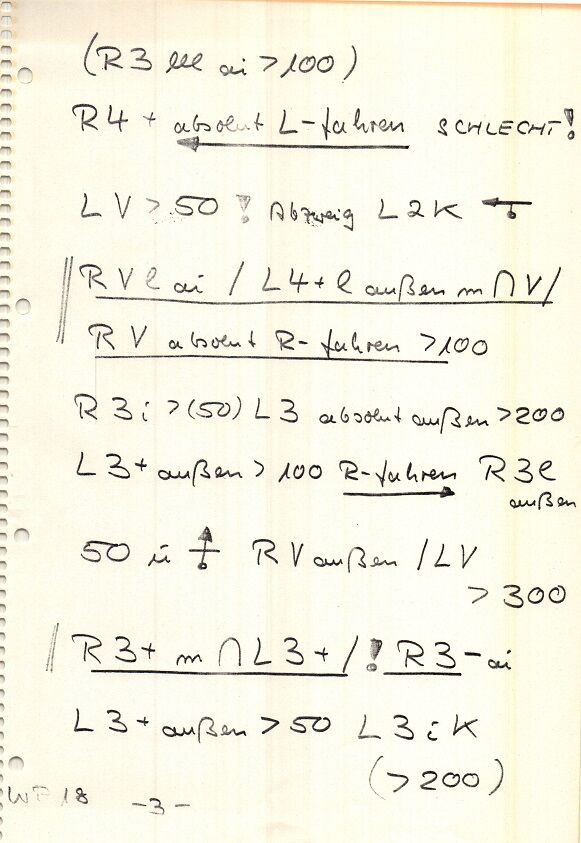 (R3 lll ai >100)
R4+ absolut L-fahren SCHLECHT!
LV >50! Abzweig L2K
RVl ai / L4+l außen m ∩ V/
RV absolut R-fahren >100
R3i >(50) L3 absolut außen >200
L3+ außen > 100 R-fahren R3l
außen
50 ü RV außen / LV
> 300
R3+ m ∩ L3+ / ! R3- ai
L3+ außen > 50 L3iK
(>200)
WP 18 -3-